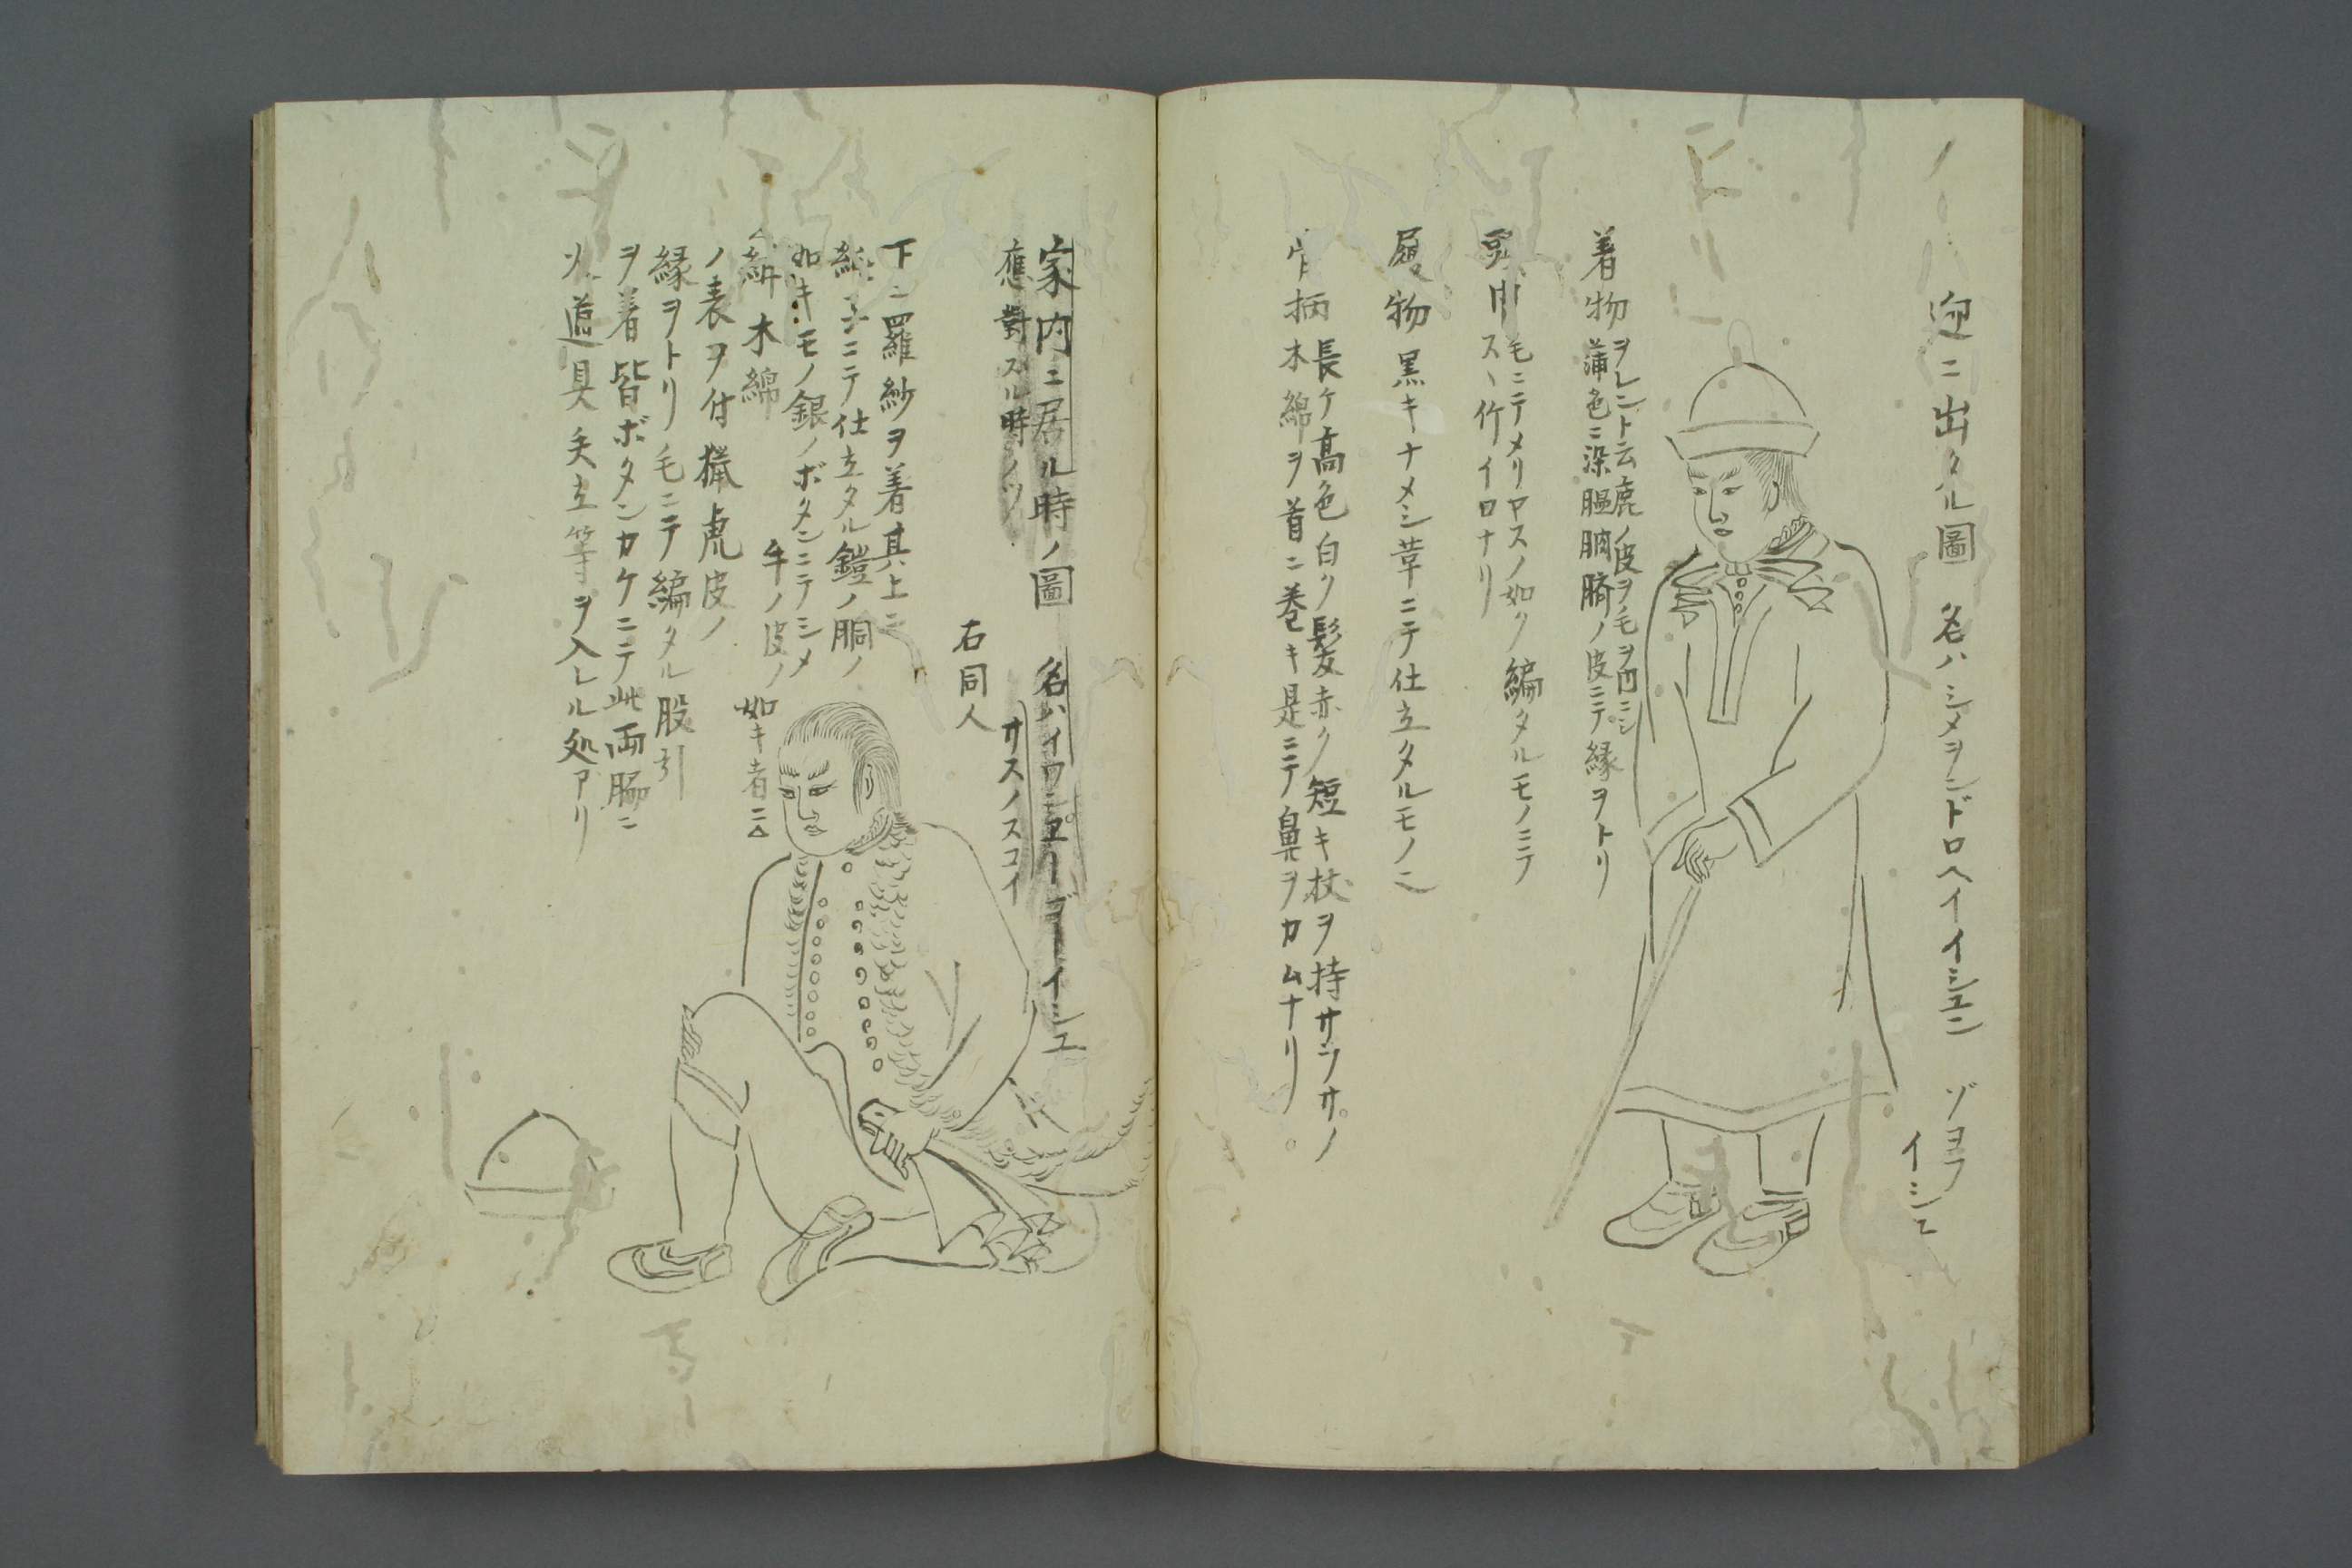 迎ニ出タル圖　名ハシメヲンドロヘイイシエン　ゾヨフ
イシエ
着物
ヲレント云鹿ノ皮ヲ毛ヲ内ニシ
蒲色ニ染膃肭臍ノ皮ニテ縁ヲトリ
頭巾
毛ニテメリヤスノ如ク編タルモノニテ
スヽ竹イロナリ
履物　黒キナメシ革ニテ仕立タルモノニ
長ケ高色白ク髪赤ク短キ杖ヲ持サラサノ
柄木綿ヲ首ニ巻キ是ニテ鼻ヲカムナリ
家内ニ居ル時ノ圖　名ハイワンユーゴーイシエ
應對スル時ノ　サスノスコイ
右同人
下ニ羅紗ヲ着其上ニ
仕立タル鎧ノ胴ノ
如キモノ銀ノボタンニテシメ
木綿　牛ノ皮ノ如キ者ニ
ノ表ヲ付猟虎皮ノ
縁ヲトリ毛ニテ編タル股引
ヲ着皆ボタンカケニテ此両脇ニ
火道具矢立等ヲ入レル処アリ